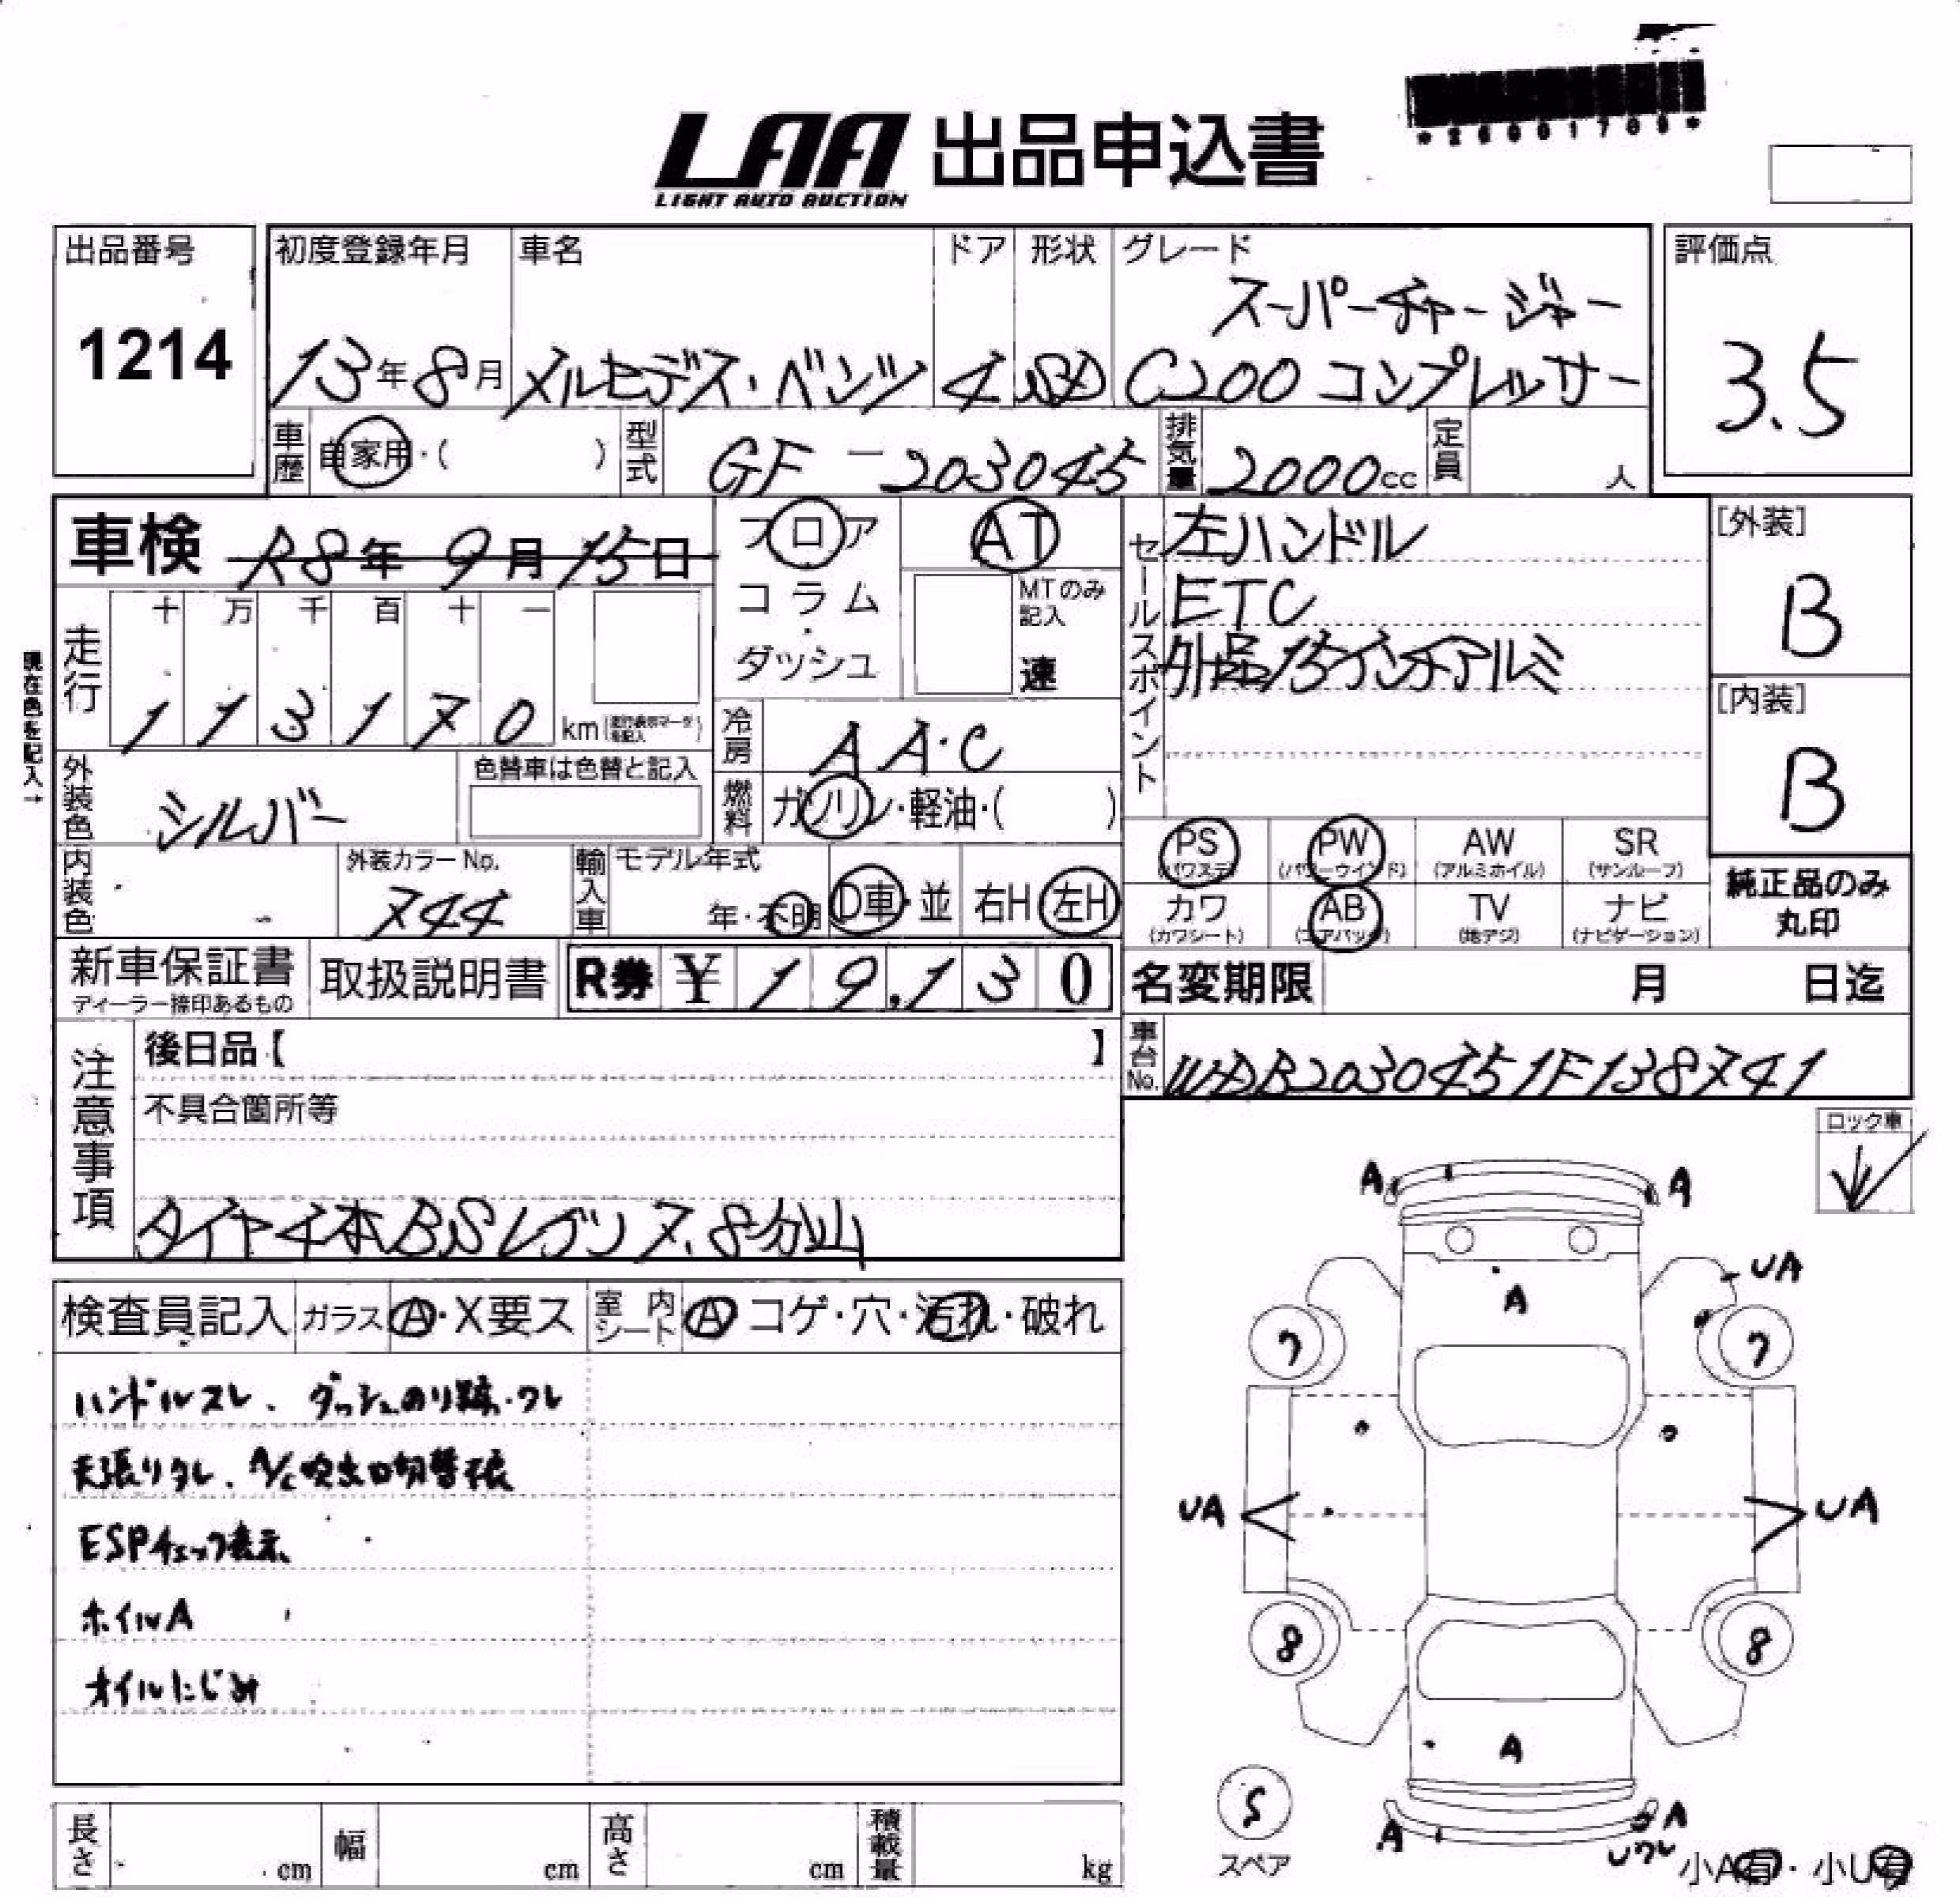 *26001709*
LAA 出品申込書
LIGHT AUTO AUCTION
出品番号 1214
初度登録年月 13年8月
車名 メルセデス・ベンツ
ドア 4
形状 SD
グレード スーパーチャージャー
C200 コンプレッサー
評価点 3.5
車歴 自家用・( )
型式 GF-203045
排気量 2000cc
定員 人
車検 R8年9月15日
フロア
コラム
・
ダッシュ
AT
MTのみ
記入
速
セールスポイント
左ハンドル
ETC
外品15インチアルミ
[外装]
B
[内装]
B
現在色を記入→
走行 十 万 千 百 十 一
1 1 3 1 7 0 km
冷房 AA・C
外装色 シルバー
色替車は色替と記入
燃料 ガソリン・軽油・( )
内装色
外装カラーNo.
744
輸入車 モデル年式
年・不明
D車・並
右H 左H
PS (パワステ)
PW (パワーウインド)
AW (アルミホイル)
SR (サンルーフ)
カワ (カワシート)
AB (エアバッグ)
TV (地デジ)
ナビ (ナビゲーション)
純正品のみ
丸印
新車保証書
ディーラー捺印あるもの
取扱説明書
R券 ¥ 19,130
名変期限 月 日迄
車台No. WDB2030451F138741
注意事項
後日品【 】
不具合箇所等
タイヤ4本BSレグノ7、8分山
ロック車
検査員記入
ガラス A・X要ス
室内シート A コゲ・穴・汚れ・破れ
ハンドルスレ、ダッシュのり跡・ワレ
天張りタレ、A/C吹出口切替不良
ESPチェック表示
ホイルA
オイルにじみ
A
A
A
UA
7
7
UA
UA
8
8
A
S
スペア
A
A
Uワレ
小A有・小U有
長さ cm
幅 cm
高さ cm
積載量 kg